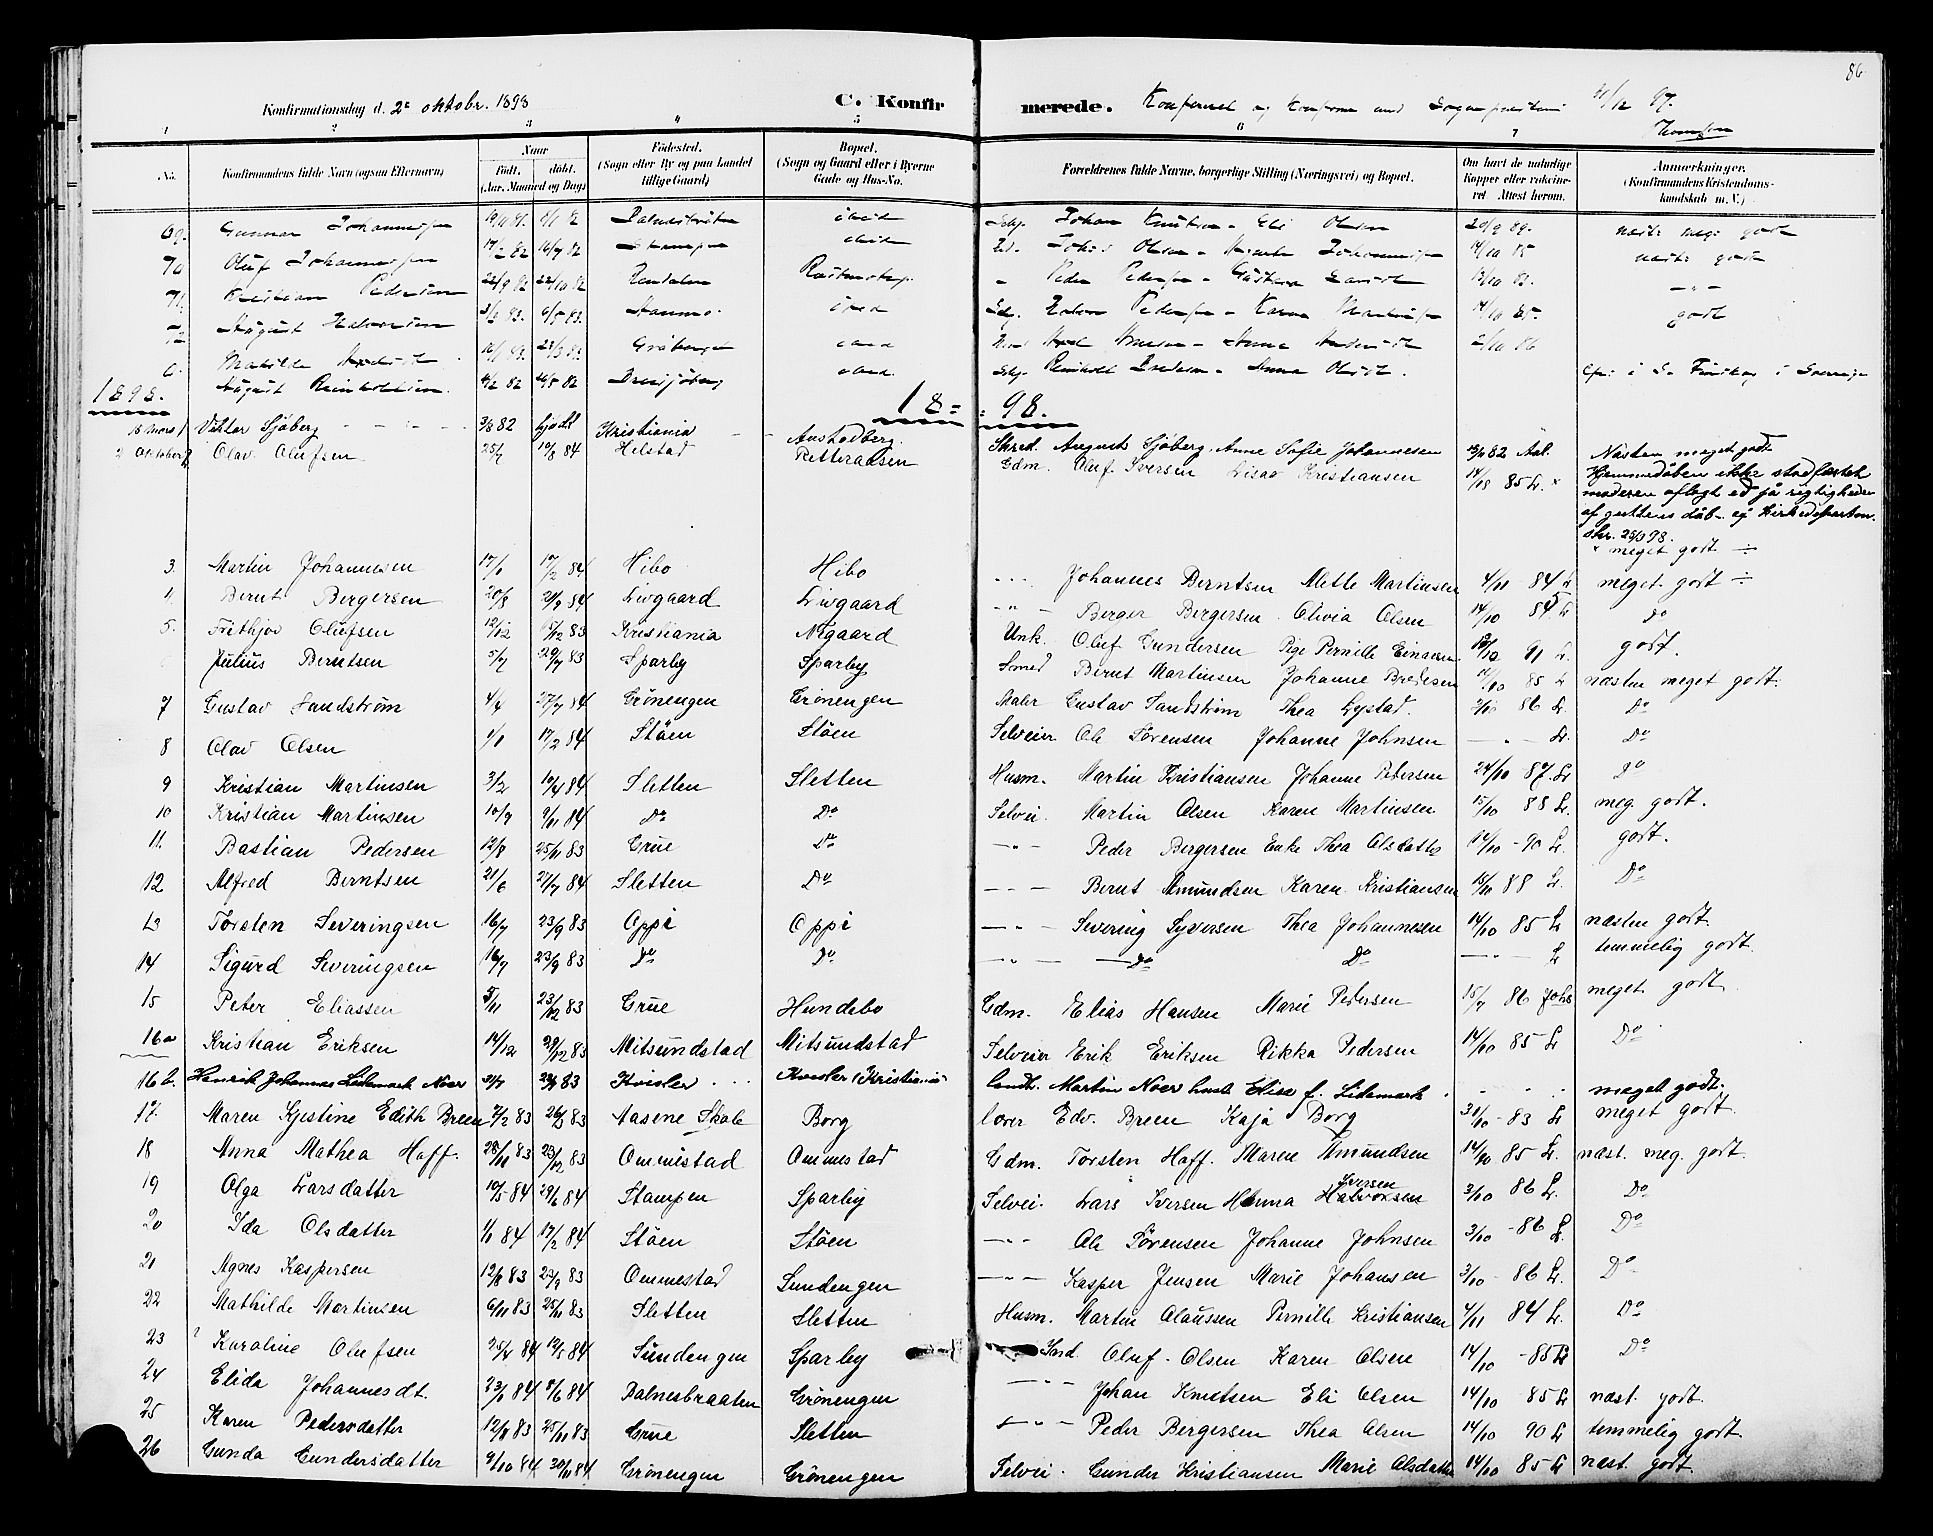 86
Konfirmationsdag d. 2e oktobr. 1898 C. Konfirmerede. Konfereret og Konform med 11/12 97.
1 2 3 4 5 6 7
No. Konfirmandens fulde Navn (ogsaa Efternavn) Naar Födt. döbt. (Aar, Maaned og Dag) Födested. (Sogn eller By og paa Landet tillige Gaard) Bopæl. (Sogn og Gaard eller i Byerne Gade og Hus-No. Forældrenes fulde Navne, borgerlige Stilling (Næringsvei) og Bopæl. Om havt de naturlige Kopper eller vakcineret Attest herom. Anmærkninger. (Konfirmandens Kristendomskundskab m. V.)
69. Gunnar Johannesen Johan Knutsen Eli Olsen 20/9 89. næste meg. godt
70 Oluf Johannessen 17/2 82 16/7 82 14/10 85 næste godt
71. Kristian Pedersen 22/9 82 22/10 82 Peder Pedersen 13/10 83. - " -
72 August Halvorsen 3/3 83. 6/5 83. 14/10 85. godt
Mathilde 2/10 86
August Reinholdsen. 4/2 82 Reinholdt Anna Olsdt. i Sverrige
1898. 18=:98.
18 Mars 1 Viktor Sjöberg 3/3 82 hjdbt Kristiania Austadberg. Skred. August Sjöberg. Anne Sofie Johannesen 82 Aal. Næsten meget godt
2 Oktober 2 Olav Olufsen 25/7 10/8 84 Helstad Petteraasen Gdm. Oluf Iversen Lisav Kristiansen 14/10 85 L. x Hjemmedåben ikke stadfæstet
moderen aflagt ed på rigtigheden
af guttens dåb - cfr Kirkedepartem.
skr. 23/3 98.
x meget godt ÷
3 Martin Johannesen 17/1 17/2 84 Hibo Hibo - " - Johannes Berntsen Mette Martinsen 4/11 84 L meget godt ÷
4 Bernt Bergersen 20/8 21/9 84 Livgaard Livgaard - " - Berger Bergersen Olivia Olsen 14/10 85 L Do
5. Frithjov Olufsen 12/12 83 Kristiania Nygaard Unk. Oluf Gundersen Pige Pernille Einarsen 91 L. godt.
6 Julius Berntsen 5/7 29/7 83 Sparby Sparby Smed Bernt Martinsen Johanne Bredesen 14/10 85 L næsten meget godt.
7 Gustav Sandström 4/4 27/7 84 Grönengen Grönengen Maler Gustav Sandström Thea Lystad. 86 L. Do
8 Olav Olsen 1/1 17/2 84 Stöen Stöen Selveier Ole Sörensen Johanne Johnsen - " - L. Do
9 Kristian Martinsen 3/2 10/4 84 Sletten Sletten Husm. Martin Kristiansen Johanne Petersen 24/10 87. L Do
10 Kristian Martinsen 10/9 9/11 84 Do Do Selvei. Martin Olsen Karen Martinsen 15/10 88 L. meg godt.
11. Bastian Pedersen 12/8 25/11 83 Grue Do - " - Peder Bergersen Enke Thea Olsdatter 14/10 - 90 L. godt.
12 Alfred Berntsen 21/6 27/7 84 Sletten Do - " - Bernt Amundsen Karen Kristiansen 15/10 88 L. Do
13 Torsten Severingsen 16/7 23/9 83 Oppi Oppi - " - Severing Syversen Thea Johannesen 14/10 85 L næsten godt.
14 Sigurd Severingsen 16/7 23/9 83 Do Do - " - Do Do - " - L temmelig godt
15 Peter Eliassen 5/11 23/12 83 Grue Hundebo Gdm. Elias Hansen Marie Petersen 15/7 86 Johs meget godt
16a Kristian Eriksen 14/12 29/12 83 Mitsundstad Mitsundstad Selveier Erik Eriksen Rikka Pedersen 14/10 85 L Do
16b. Henrik Johannes Lidemark Noer 83 Kvisler . . . Kvisler (Kristiania) landh. Martin Noer hust Elise f. Lidemark . - . meget godt.
17. Maren Kjestine Edith Breen 7/2 83 26/3 83 Aasene Skole Borg lærer Edv. Breen Kaja Borg 31/10 - 83 L meget godt.
18 Anna Mathea Hoff. 28/11 83 23/12 83 Ommestad Ommestad Gdm. Torsten Hoff. Maren Amundsen 14/10 85 L. næst. meg. godt.
19 Olga Larsdatter 10/5 84 29/6 84 Stampen Sparby Selvei. Lars Iversen Hanna Halvorsen Iversen 3/10 86 L. Do
20 Ida Olsdatter 1/1 84 17/2 84 Stöen Stöen - " - Ole Sörensen Johanne Johnsen 3/10 - 86 L. Do
21 Agnes Kaspersen 12/8 83 23/9 83 Ommestad Sundengen - " - Kasper Jensen Marie Johansen 3/10 - 86 L. Do
22 Mathilde Martinsen 6/11 83 25/11 83 Sletten Sletten Husm. Martin Olaussen Pernille Kristiansen 4/11 84 L. Do
23 Karoline Olufsen 25/4 84 12/5 84 Sundengen Sparby Ind. Oluf. Olsen Karen Olsen 14/10 - 85 L Do
24 Elida Johannesdt. 84 84 Balnesbraaten Grönengen - " - Johan Knutsen Eli Olsen 14/10 85 L næst. godt.
25 Karen Pedersdatter 12/8 83 25/11 83 Grue Sletten - " - Peder Bergersen Thea Olsen 14/10 90 L temmelig godt.
26 Gunda Gundersdatter 9/10 84 30/11 84 Grönengen Grönengen Selvei. Gunder Kristiansen Marie Olsdatter 14/10 85 L næst. godt.